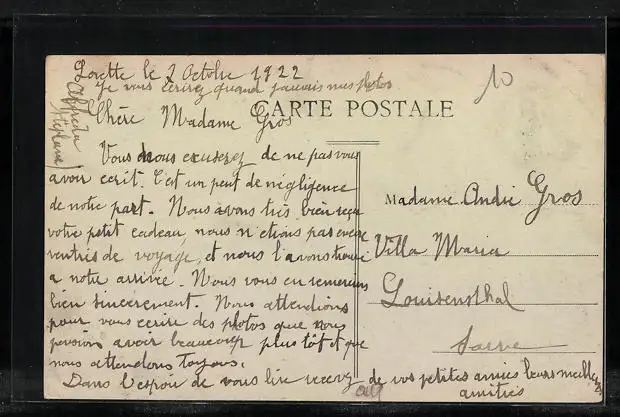 Lorette le 2 Octobre 1922
Je vous écrirez quand j'aurais mes photos
CARTE POSTALE
10
Chère Madame Gros
Vous nous excuserez de ne pas vous
avoir ecrit. C'est un peut de négligence
de notre part. Nous avons très bien reçu
votre petit cadeau, nous n'étions pas encore
rentrés de voyage, et nous l'avons trouvé
a notre arrivée. Nous vous en remercions
bien sincèrement. Nous attendions
pour vous ecrire des photos que nous
pensions avoir beaucoup plus tôt et que
nous attendons toujours.
Dans l'espoir de vous lire recevez
de vos petites amies leurs meilleures
amitiés
Madame André Gros
Villa Maria
Louisensthal
Sarre